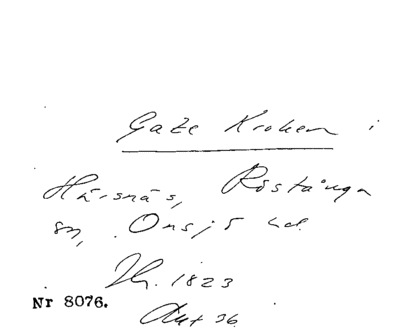 Gate Kroken i
Härsnäs, Röstånga
sn, Onsjö hd.
Th. 1823
Nr 8076.
Akt 36